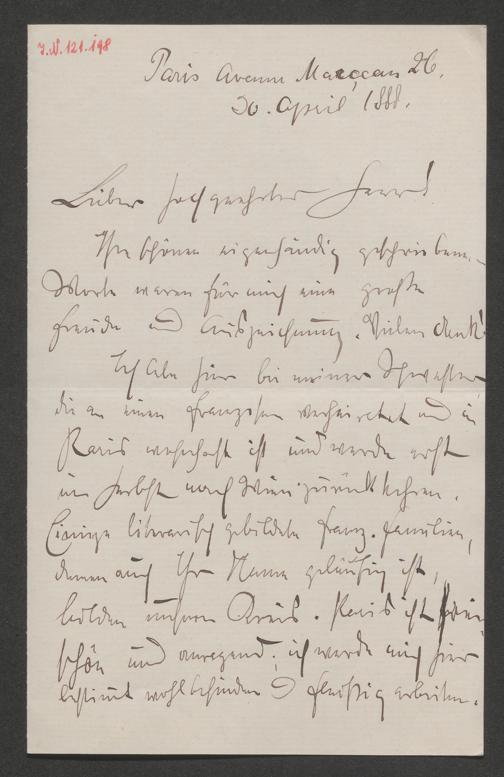 J.N. 121.198
Paris Avenue Marceau 26.
30. April 1888.
Lieber hochgeehrter Herr!
Ihre schönen eigenhändig geschriebenen
Worte waren für mich eine große
Freude und Auszeichnung. Vielen Dank!
Ich lebe hier bei meiner Schwester,
die an einen Franzosen verheiratet und in
Paris wohnhaft ist und werde erst
im Herbst nach Wien zurückkehren.
Einige literarisch gebildete franz. Familien,
denen auch Ihr Name geläufig ist,
bilden unseren Kreis. Paris ist
schön und anregend; ich werde mich hier
bestimmt wohlbefinden u fleißig arbeiten.